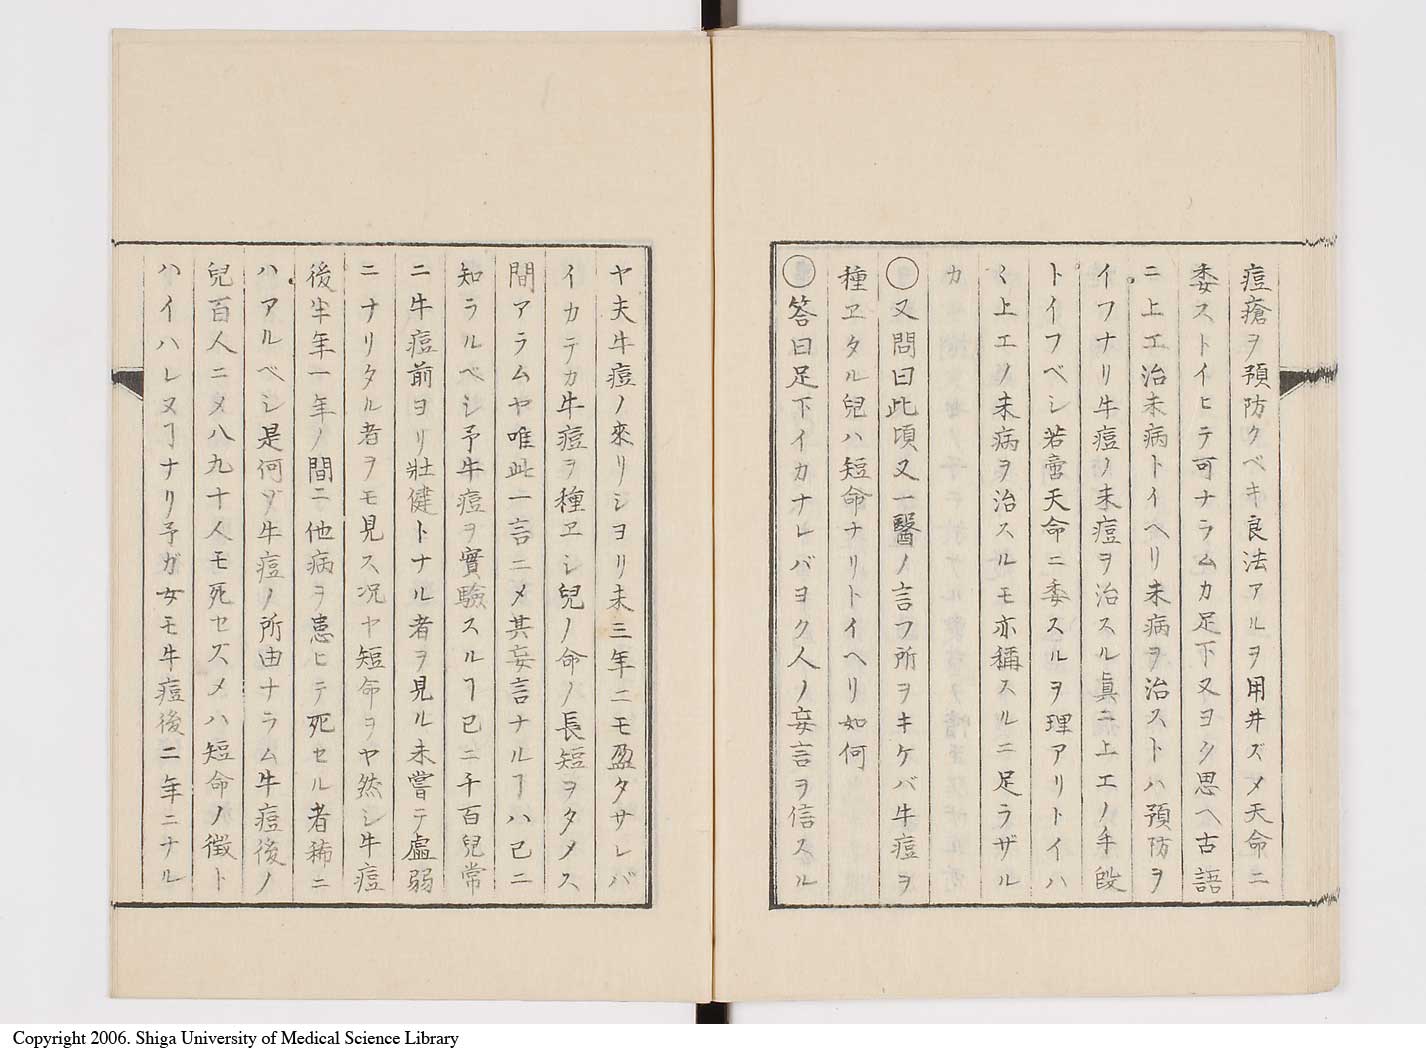 痘瘡ヲ預防クベキ良法アルヲ用井ズメ天命ニ
委ストイヒテ可ナラムカ足下又ヨク思ヘ古語
ニ上工治未病トイヘリ未病ヲ治ストハ預防ヲ
イフナリ牛痘ノ未痘ヲ治スル眞ニ上工ノ手段
トイフベシ若啻天命ニ委スルヲ理アリトイハ
ミ上工ノ未病ヲ治スルモ亦稱スルニ足ラザル
カ
〇又問曰此頃又一醫ノ言フ所ヲキケバ牛痘ヲ
種ヱタル兒ハ短命ナリトイヘリ如何
〇答曰足下イカナレバヨク人ノ妄言ヲ信スル
ヤ夫牛痘ノ來リショリ未三年ニモ盈タサレバ
イカテカ牛痘ヲ種ヱシ兒ノ命ノ長短ヲタメス
間アラムヤ唯此一言ニメ其妄言ナルヿハ已ニ
知ラルベシ予牛痘ヲ實驗スルヿ已ニ千百兒常
ニ牛痘前ヨリ壯健トナル者ヲ見ル未嘗テ虛弱
ニナリタル者ヲモ見ス况ヤ短命ヲヤ然シ牛痘
後半年一年ノ間ニ他病ヲ患ヒテ死セル者稀ニ
ハアルベシ是何ゾ牛痘ノ所由ナラム牛痘後ノ
兒百人ニメ八九十人モ死セズメハ短命ノ徴ト
ハイハレヌヿナリ予ガ女モ牛痘後二年ニナル
Copyright 2006. Shiga University of Medical Science Library